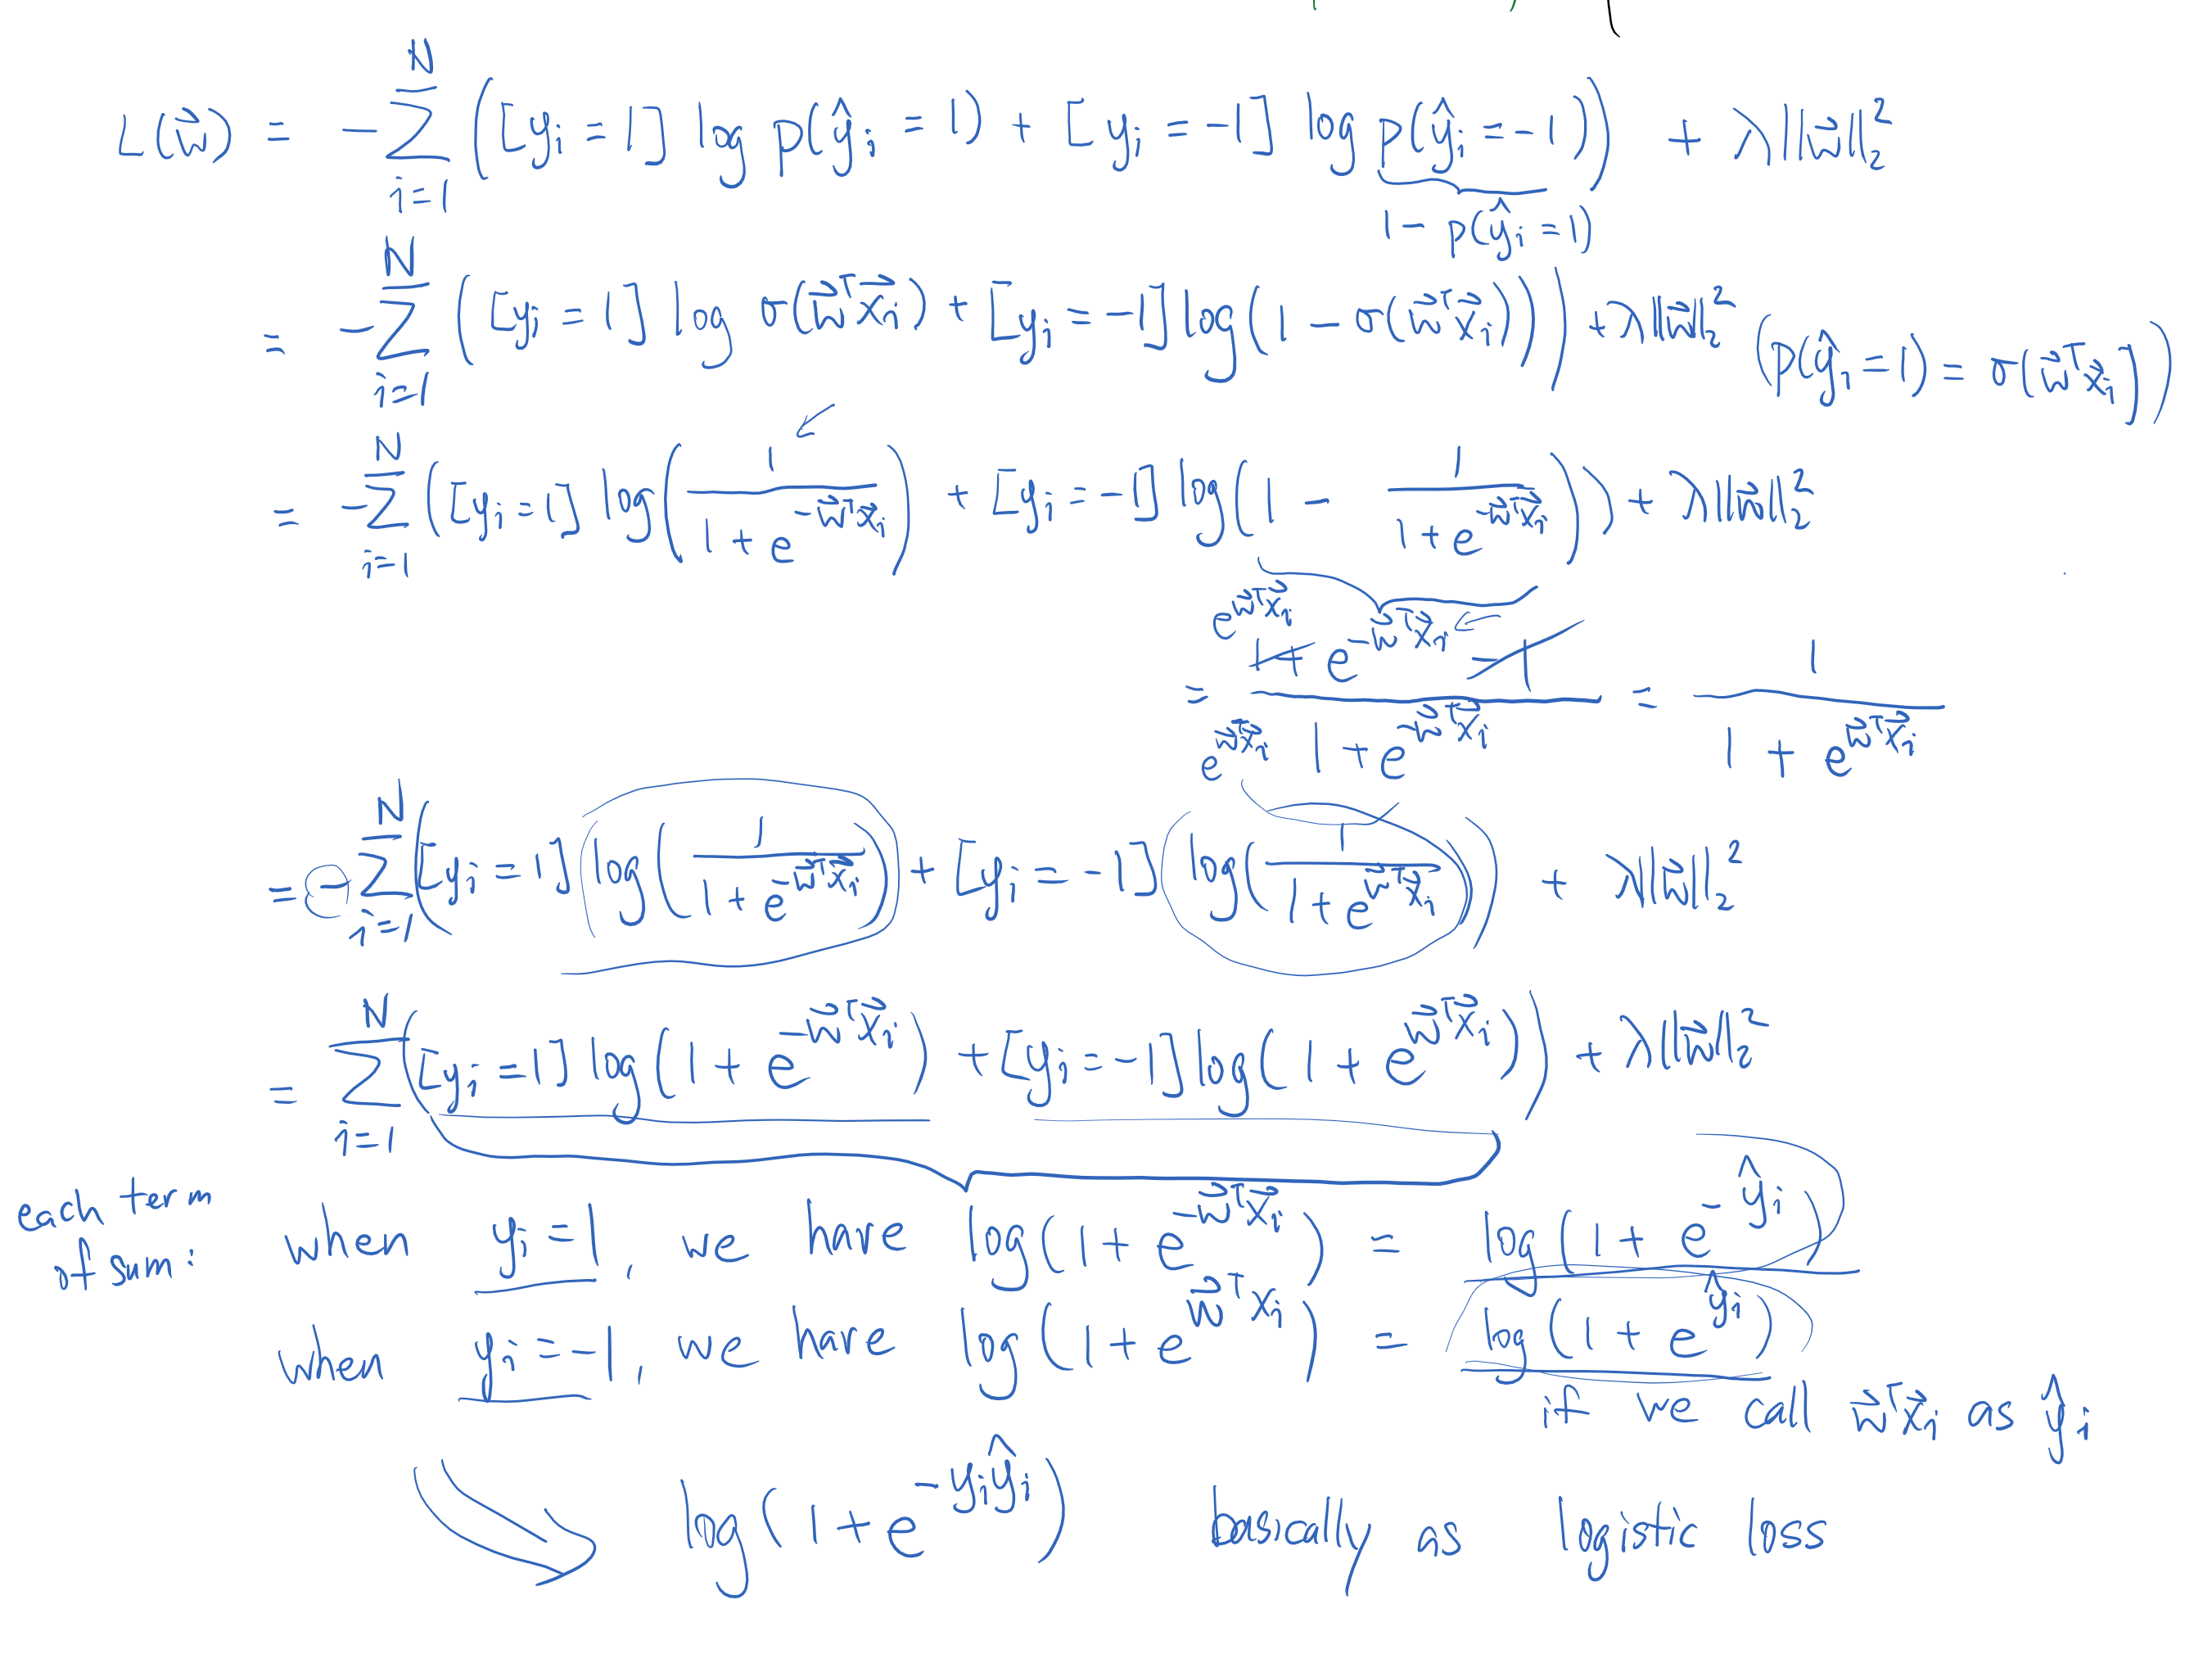 L(w⃗) = -∑_{i=1}^{N} ([y_i = 1] log p(ŷ_i = 1) + [y_i = -1] log p(ŷ_i = -1)) + λ||w⃗||_2^2
1 - p(ŷ_i = 1)
= -∑_{i=1}^{N} ([y_i = 1] log σ(w⃗^T x⃗_i) + [y_i = -1] log(1 - σ(w⃗^T x⃗_i))) + λ||w⃗||_2^2 (p(ŷ_i = 1) = σ(w⃗^T x⃗_i))
= -∑_{i=1}^{N} ([y_i = 1] log(1 / (1 + e^{-w⃗^T x⃗_i})) + [y_i = -1] log(1 - 1 / (1 + e^{-w⃗^T x⃗_i}))) + λ||w⃗||_2^2
= e^{w⃗^T x⃗_i} (1 + e^{-w⃗^T x⃗_i} - 1) / (e^{w⃗^T x⃗_i} (1 + e^{-w⃗^T x⃗_i})) = 1 / (1 + e^{w⃗^T x⃗_i})
= -∑_{i=1}^{N} ([y_i = 1] log(1 / (1 + e^{-w⃗^T x⃗_i})) + [y_i = -1] log(1 / (1 + e^{w⃗^T x⃗_i}))) + λ||w⃗||_2^2
= ∑_{i=1}^{N} ([y_i = 1] log(1 + e^{-w⃗^T x⃗_i}) + [y_i = -1] log(1 + e^{w⃗^T x⃗_i})) + λ||w⃗||_2^2
each term
of sum:
when y_i = 1, we have log(1 + e^{-w⃗^T x⃗_i}) = log(1 + e^{-ŷ_i})
when y_i = -1, we have log(1 + e^{w⃗^T x⃗_i}) = log(1 + e^{ŷ_i})
if we call w⃗^T x⃗_i as ŷ_i
⇒ log(1 + e^{-y_i ŷ_i}) basically as logistic loss